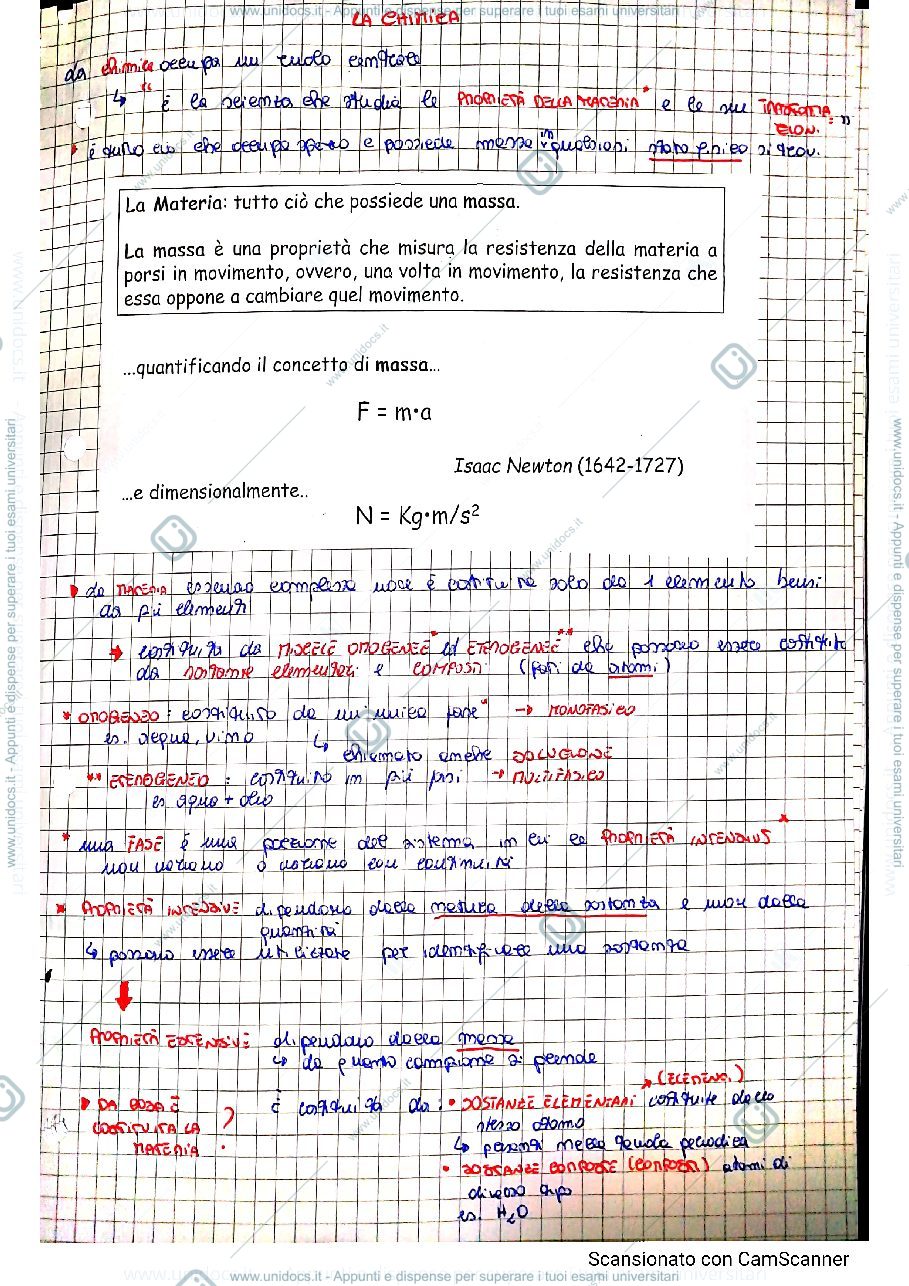 www.unidocs.it - Appunti e dispense per superare i tuoi esami universitari
LA CHIMICA
La chimica occupa un ruolo centrale
↳ "è la scienza che studia le PROPRIETÀ DELLA MATERIA* e le sue TRASFORMA-
ZIONI."
è tutto ciò che occupa spazio e possiede massa in qualsiasi stato fisico si trovi.
La Materia: tutto ciò che possiede una massa.
La massa è una proprietà che misura la resistenza della materia a
porsi in movimento, ovvero, una volta in movimento, la resistenza che
essa oppone a cambiare quel movimento.
...quantificando il concetto di massa...
F = m•a
Isaac Newton (1642-1727)
...e dimensionalmente..
N = Kg•m/s²
La MATERIA essendo complessa non è costituita solo da 1 elemento bensì
da più elementi
→ costituita da MISCELE OMOGENEE* ed ETEROGENEE** che possono essere costituite
da sostanze elementari e COMPOSTI (fatti da atomi)
* OMOGENEO: costituito da un'unica fase* → MONOFASICO
es. acqua, vino ↳ chiamato anche SOLUZIONE
** ETEROGENEO: costituito in più fasi → MULTIFASICO
es. acqua + olio
* una FASE è una porzione del sistema in cui le PROPRIETÀ INTENSIVE*
non variano o variano con continuità
* PROPRIETÀ INTENSIVE dipendono dalla natura della sostanza e non dalla
quantità
↳ possono essere utilizzate per identificare una sostanza
PROPRIETÀ ESTENSIVE dipendono dalla massa
↳ da quanto campione si prende
DA COSA È COSTITUITA LA MATERIA?
È costituita da: • SOSTANZE ELEMENTARI (ELEMENTI) costituite dallo
stesso atomo
↳ presenti nella tavola periodica
• SOSTANZE COMPOSTE (COMPOSTI) atomi di
diverso tipo
es. H₂O
Scansionato con CamScanner
www.unidocs.it - Appunti e dispense per superare i tuoi esami universitari